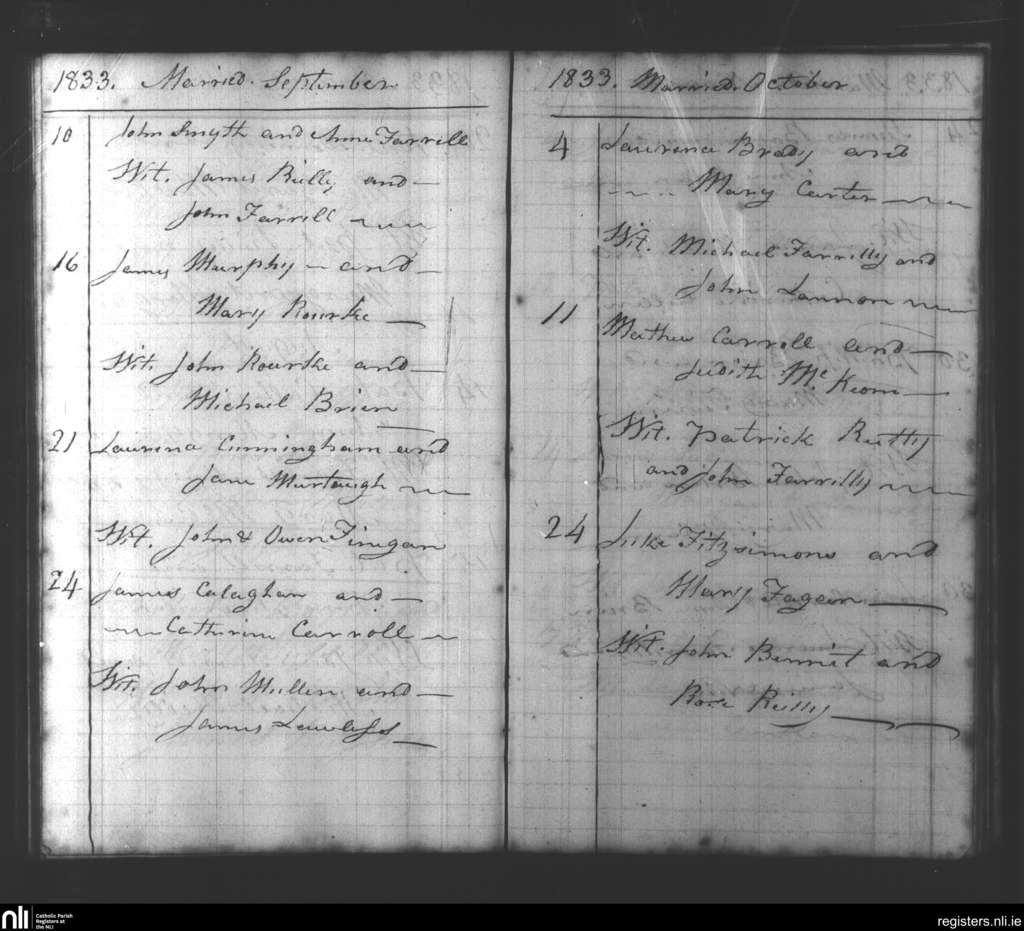 1833. Married. September
10 John Smyth and Anne Farrell
Wit. James Reilly and
John Farrell
16 James Murphy and
Mary Rourke
Wit. John Rourke and
Michael Brien
21 Laurence Cunningham and
Jane Murtaugh
Wit. John & Owen Finegan
24 James Calaghan and
Catherine Carroll
Wit. John Mullen and
James Lawless
1833. Married. October
4 Laurence Brady and
Mary Carter
Wit. Michael Farrelly and
John Lannon
11 Mathew Carroll and
Judith McKeon
Wit. Patrick Reilly
and John Farrelly
24 Luke Fitzsimons and
Mary Fagan
Wit. John Bennet and
Rose Reilly
nli
Catholic Parish
Registers at
the NLI
registers.nli.ie